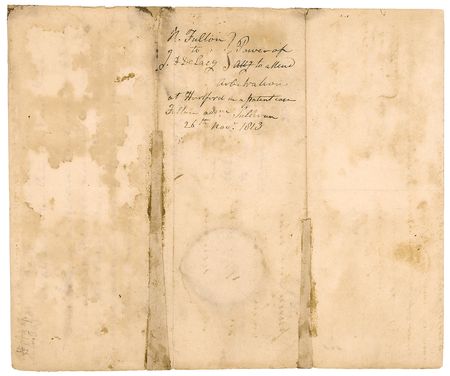 R. Fulton } Power of
to
J. F DeLacy } Atty to attend
Arbitration
at Hartford in a patent case
Fulton adsm Sullivan
26th Novr. 1813